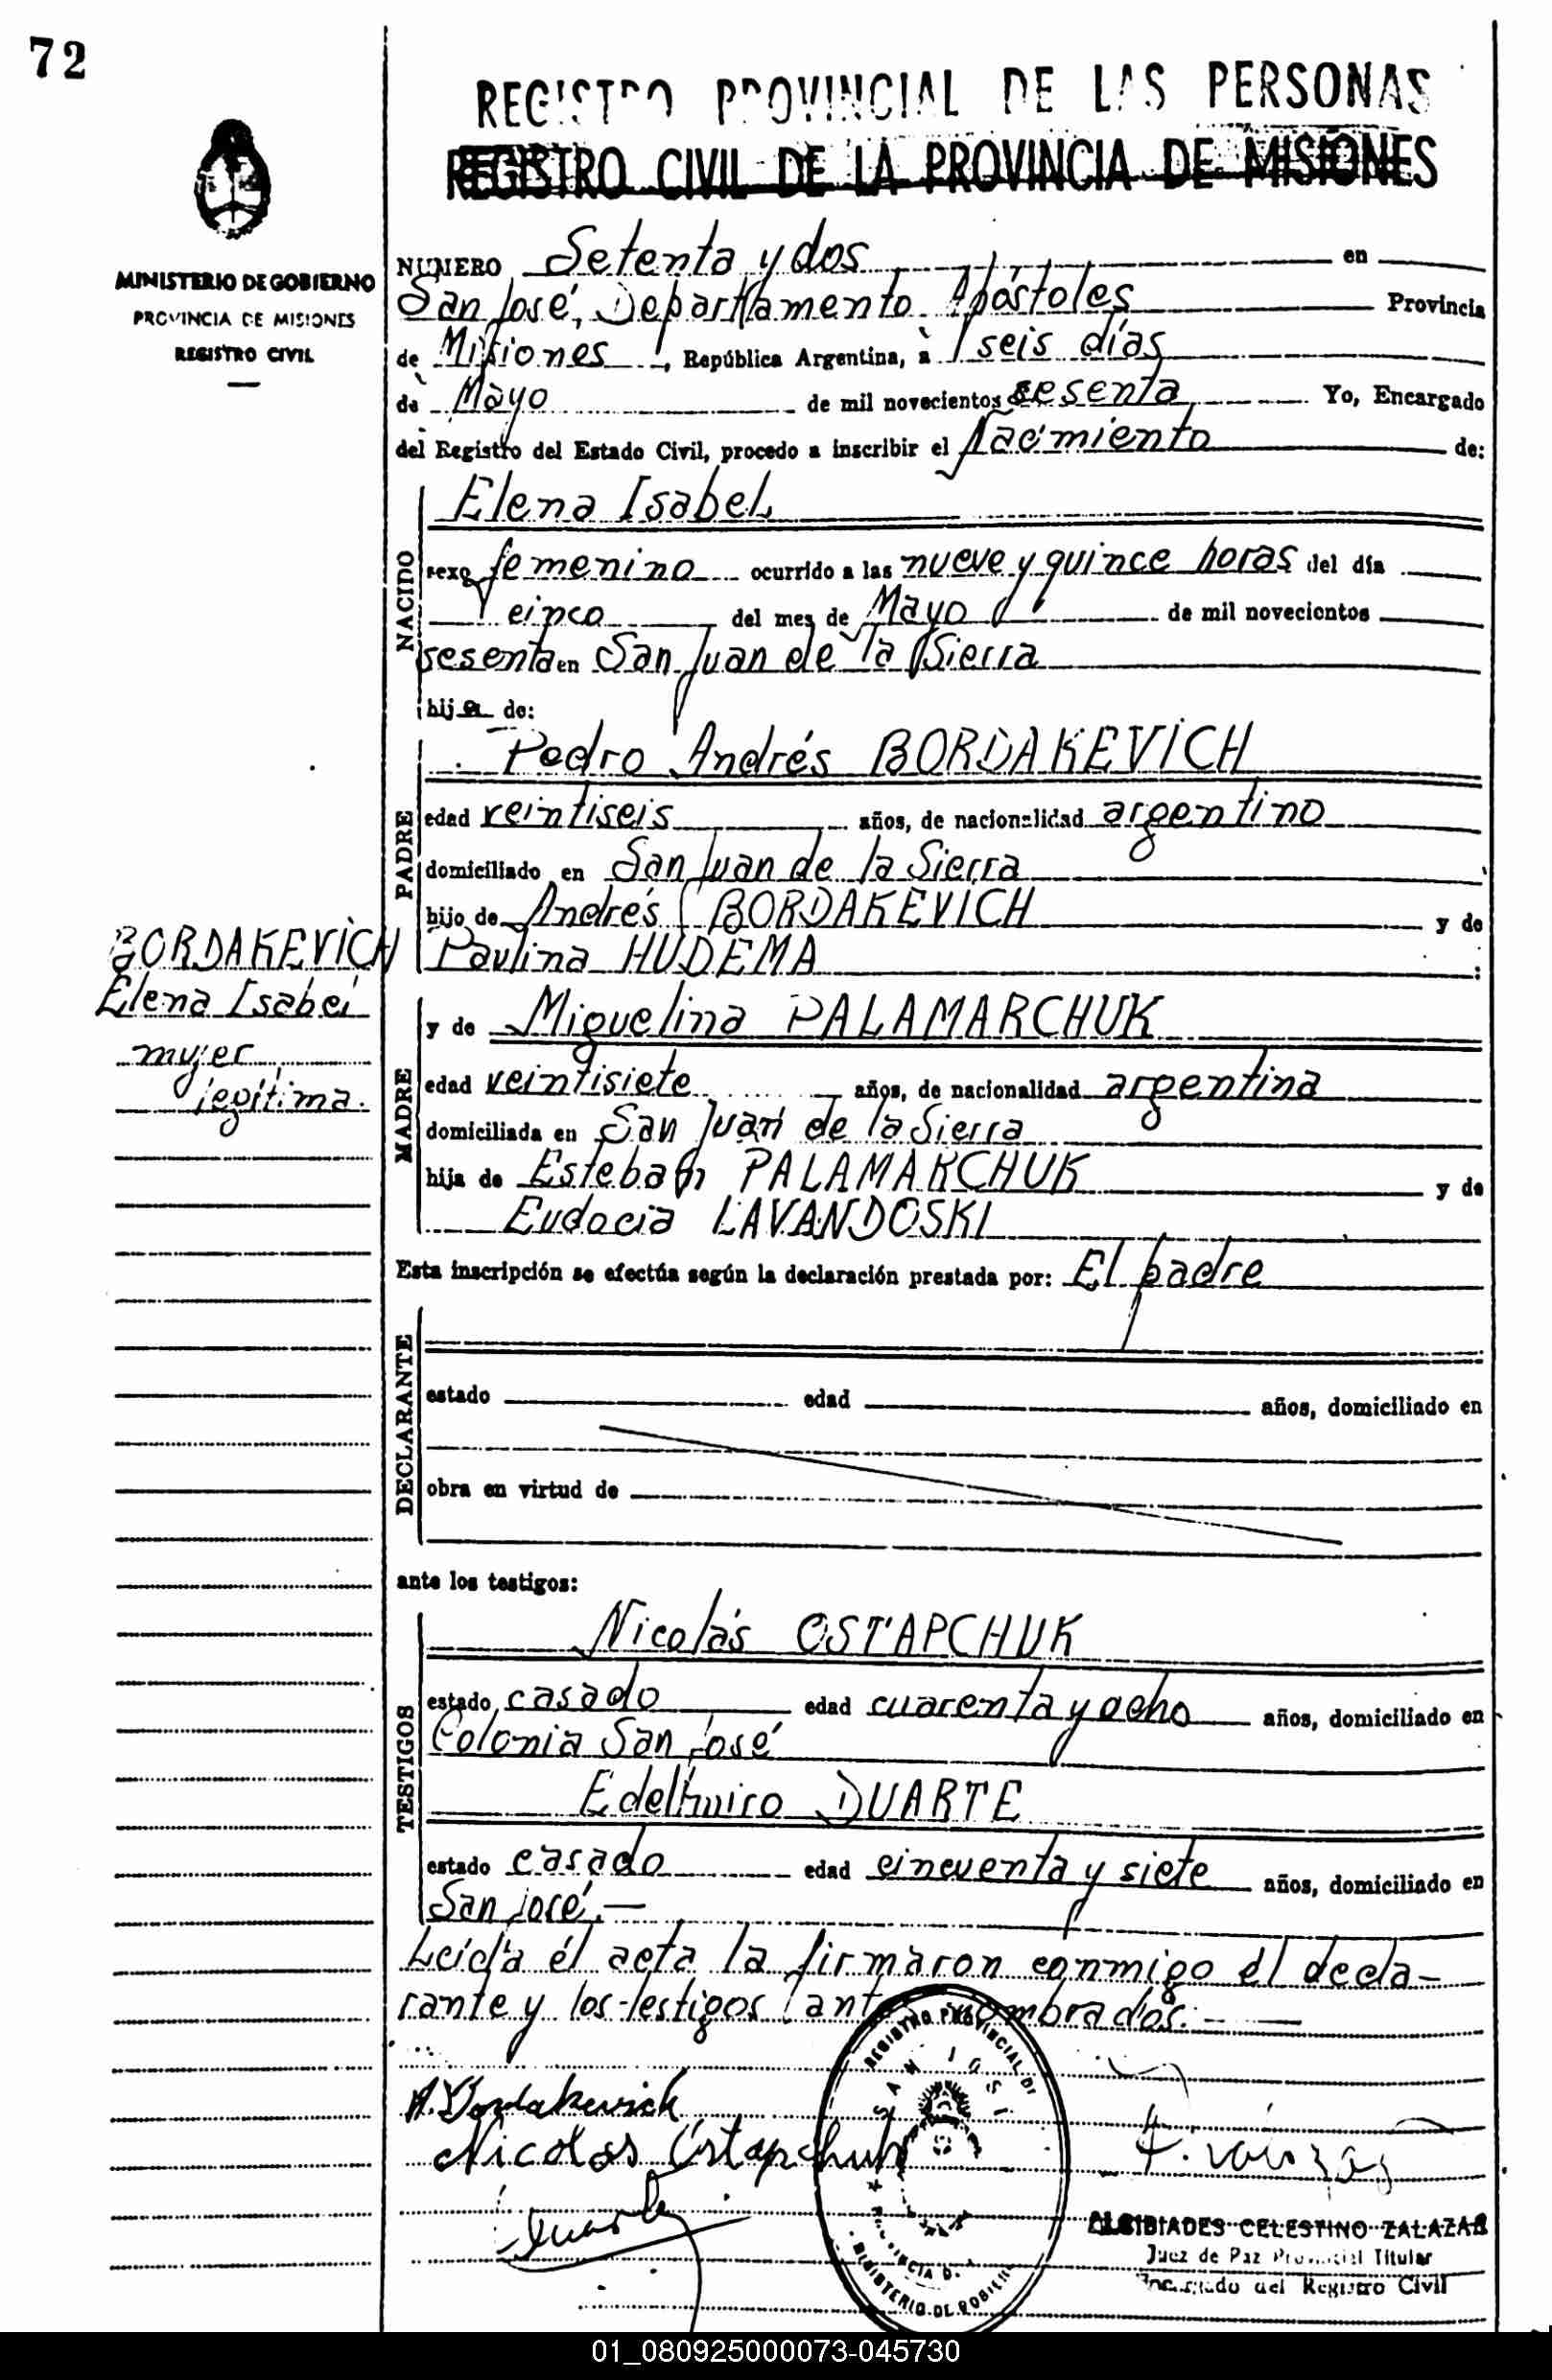 72
REGISTRO PROVINCIAL DE LAS PERSONAS
REGISTRO CIVIL DE LA PROVINCIA DE MISIONES
MINISTERIO DE GOBIERNO
PROVINCIA DE MISIONES
REGISTRO CIVIL
NUMERO Setenta y dos en
San José, Departamento Apóstoles Provincia
de Misiones, República Argentina, a seis días
de Mayo de mil novecientos sesenta Yo, Encargado
del Registro del Estado Civil, procedo a inscribir el nacimiento de:
NACIDO
Elena Isabel
sexo femenino ocurrido a las nueve y quince horas del día
cinco del mes de Mayo de mil novecientos
sesenta en San Juan de la Sierra
hija de:
PADRE
Pedro Andrés BORDAKEVICH
edad veintiseis años, de nacionalidad argentino
domiciliado en San Juan de la Sierra
hijo de Andrés BORDAKEVICH y de
Paulina HUDEMA
BORDAKEVICH
Elena Isabel
mujer
legítima.
MADRE
y de Miguelina PALAMARCHUK
edad veintisiete años, de nacionalidad argentina
domiciliada en San Juan de la Sierra
hija de Esteban PALAMARCHUK y de
Eudocia LAVANDOSKI
Esta inscripción se efectúa según la declaración prestada por: El padre
DECLARANTE
estado edad años, domiciliado en
obra en virtud de
ante los testigos:
TESTIGOS
Nicolás OSTAPCHUK
estado casado edad cuarenta y ocho años, domiciliado en
Colonia San José
DUARTE
estado casado edad cincuenta y siete años, domiciliado en
San José.—
Leída él acta la firmaron conmigo el decla-
rante y los testigos antes nombrados.—
REGISTRO PROVINCIAL DE
SAN JOSE
PROVINCIA D.
MINISTERIO DE GOBIERNO
A. Bordakevich
Nicolas Ostapchuk
Duarte
ALCIBIADES CELESTINO ZALAZAR
Juez de Paz Provincial Titular
Encargado del Registro Civil
01_080925000073-045730